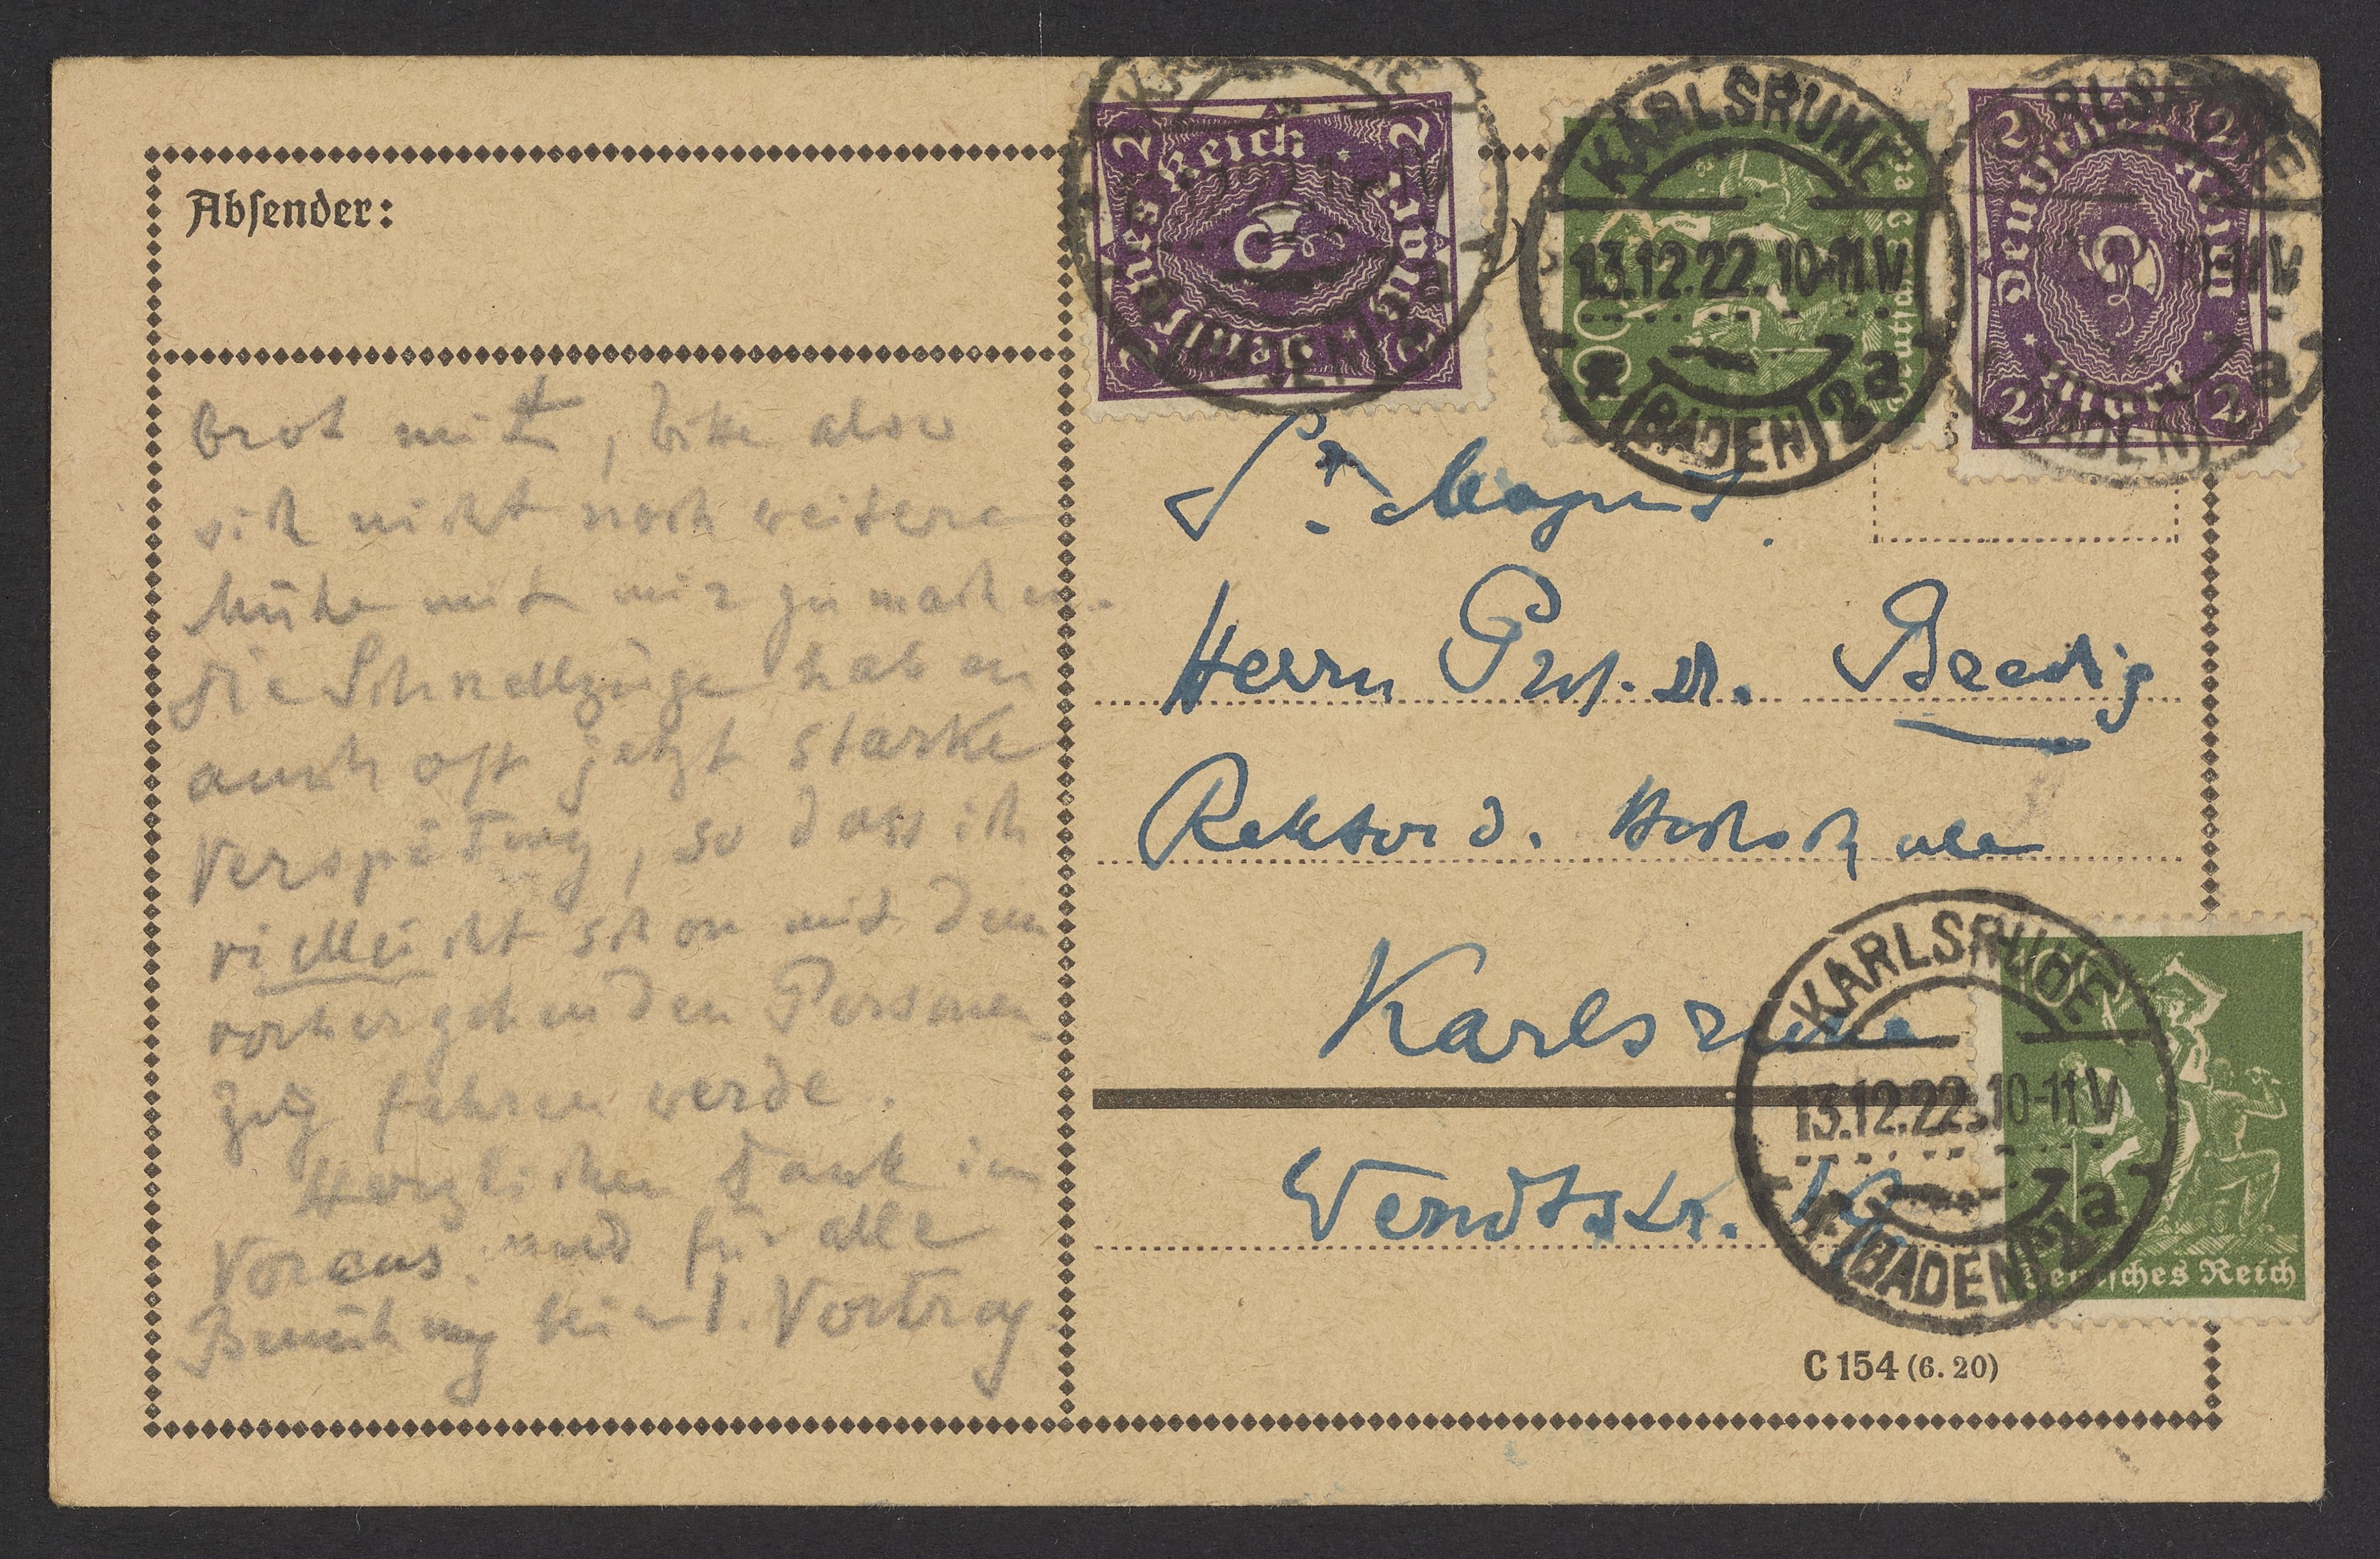 Absender:
brot mit, bitte also
sich nicht noch weitere
Mühe mit mir zu machen.
Die Schnellzüge haben
auch oft jetzt starke
Verspätung, so dass ich
vielleicht schon mit dem
vorhergehenden Personen-
zug fahren werde.
Herzlichen Dank im
Voraus und für alle
Bemühung beim 1. Vortrag.
Deutsches Reich
2 2 2 2
KARLSRUHE
13.12.22. 10-11 V
(BADEN) 2a
Deutsches Reich
2 2 2 2
KARLSRUHE
(BADEN) 2a
Sr. Magnif.
Herrn Prof. Dr. Bredig
Rektor d. Hochschule
Karlsruhe
Wendtstr.
KARLSRUHE
13.12.22. 10-11 V
(BADEN) 2a
Deutsches Reich
C 154 (6. 20)